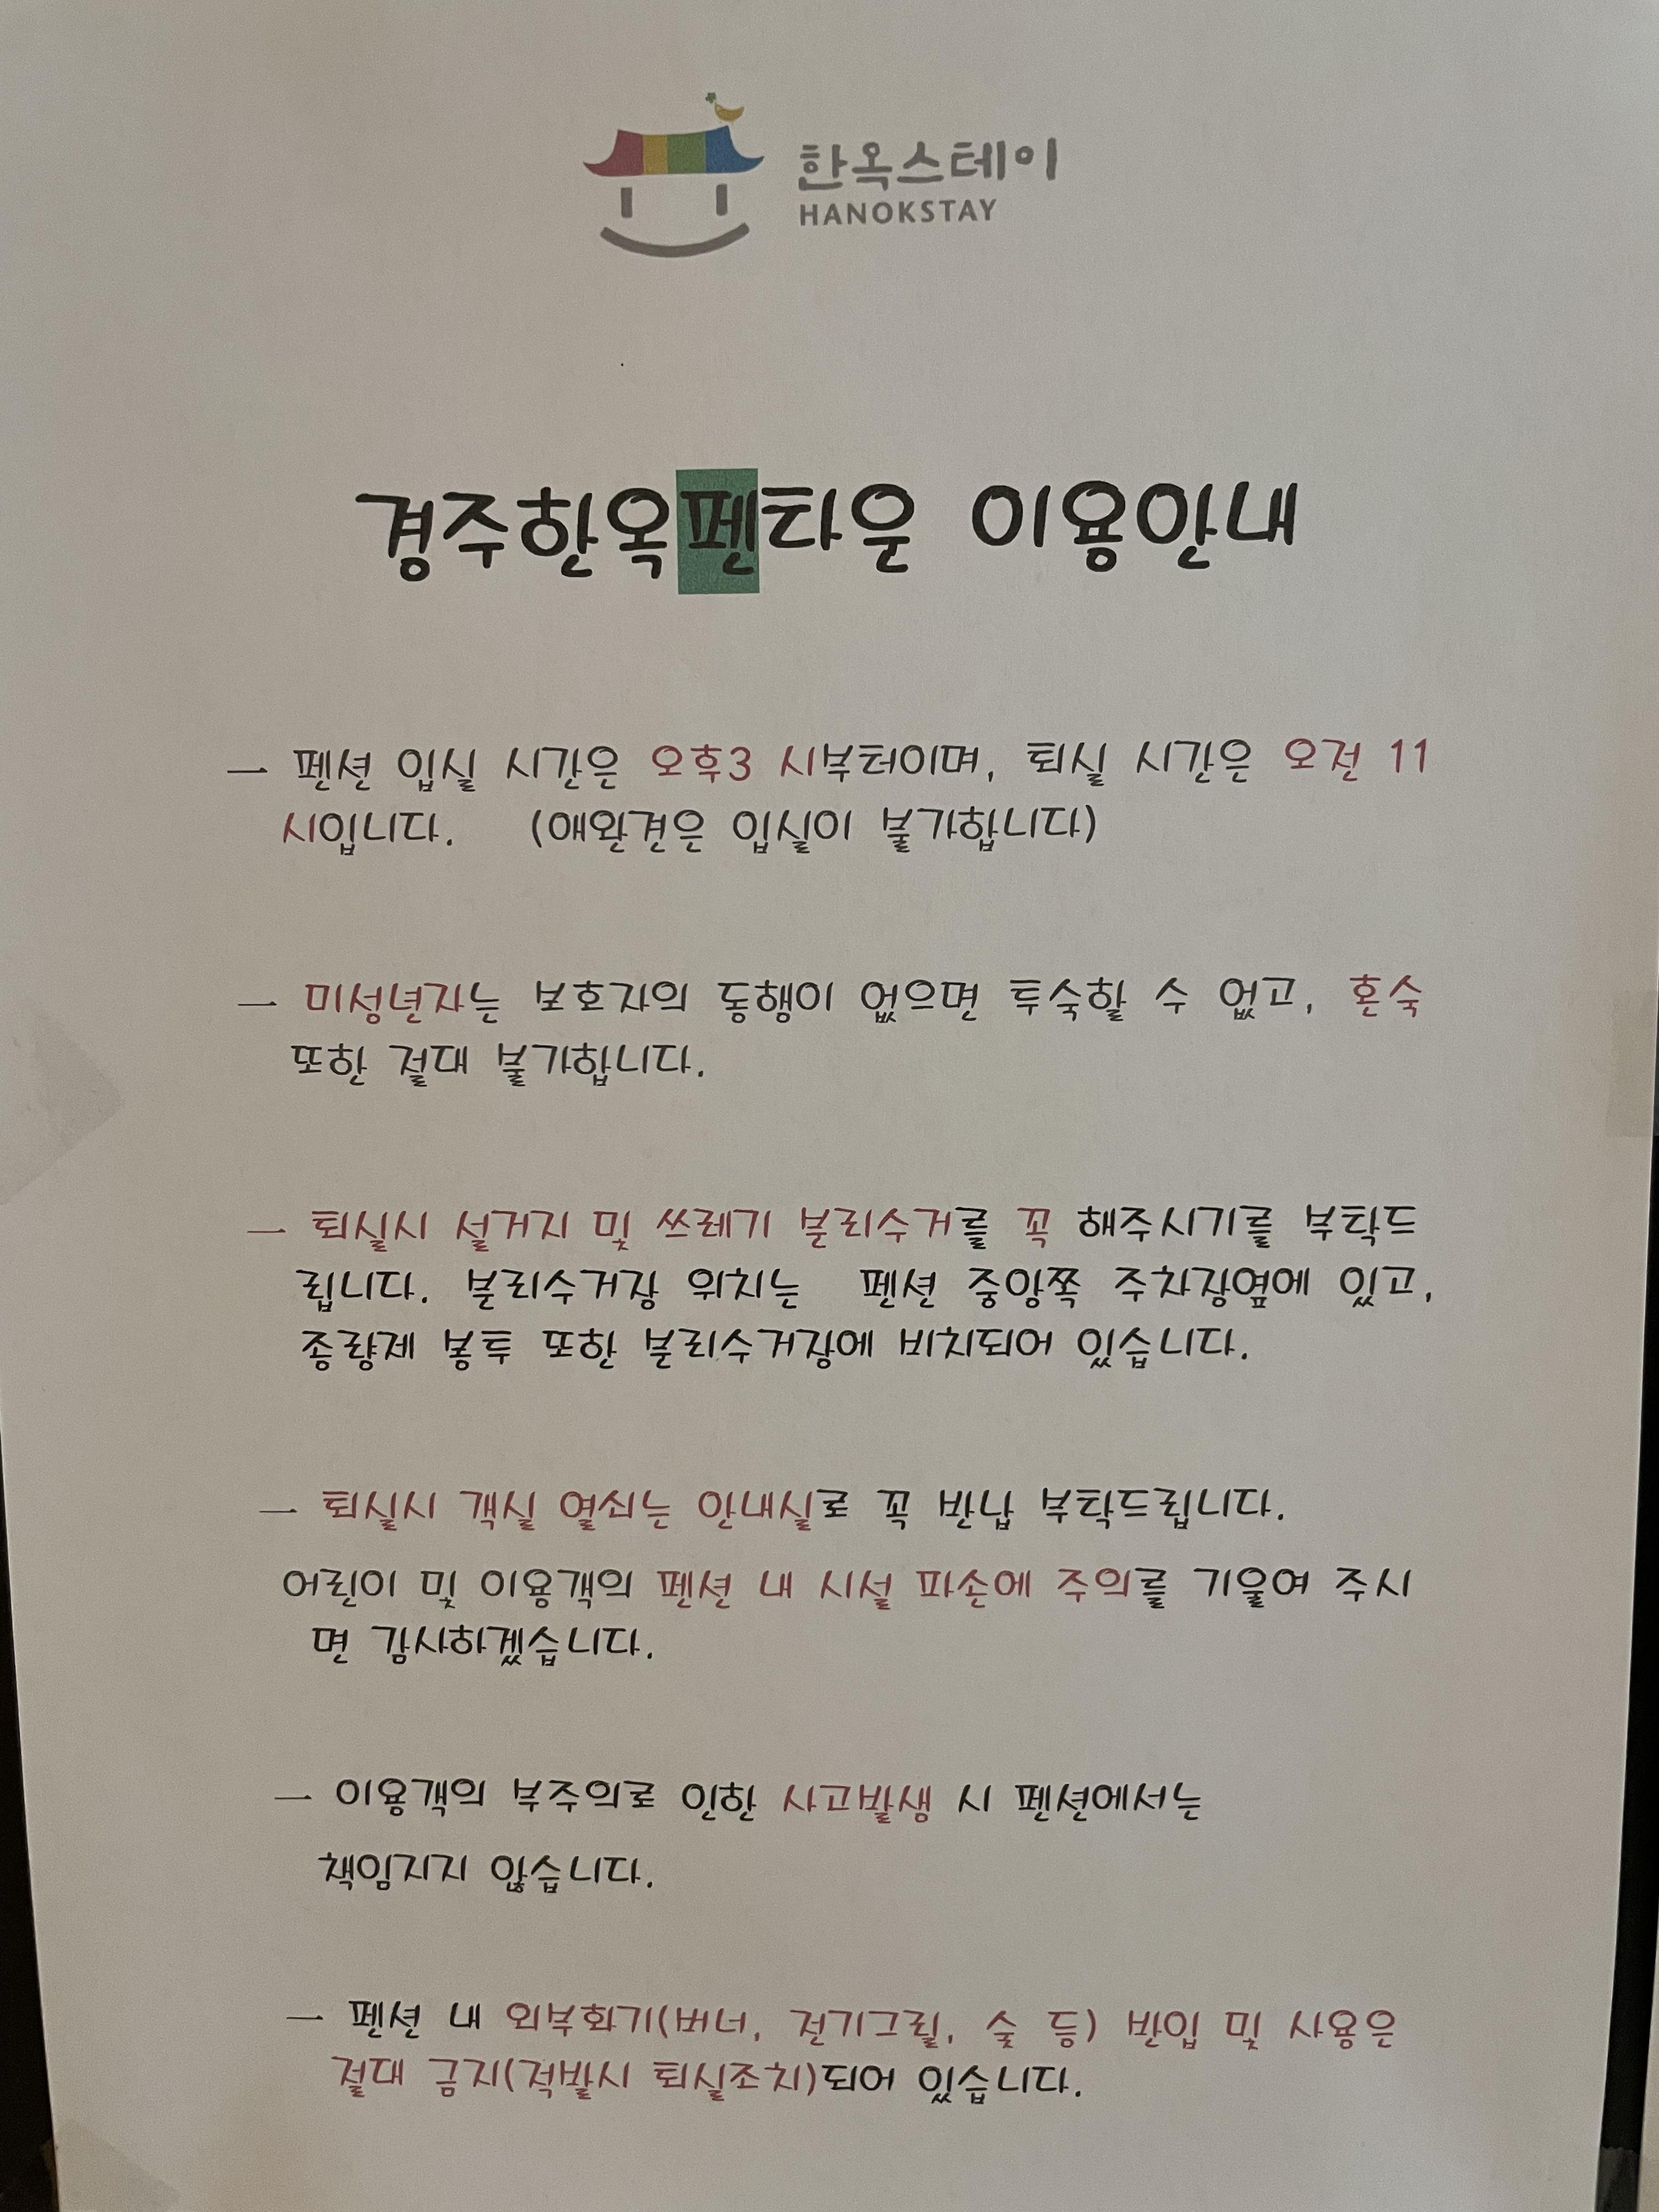 한옥스테이
HANOKSTAY
경주한옥펜타운 이용안내
- 펜션 입실 시간은 오후3 시부터이며, 퇴실 시간은 오전 11
시입니다. (애완견은 입실이 불가합니다)
- 미성년자는 보호자의 동행이 없으면 투숙할 수 없고, 혼숙
또한 절대 불가합니다.
- 퇴실시 설거지 및 쓰레기 분리수거를 꼭 해주시기를 부탁드
립니다. 분리수거장 위치는 펜션 중앙쪽 주차장옆에 있고,
종량제 봉투 또한 분리수거장에 비치되어 있습니다.
- 퇴실시 객실 열쇠는 안내실로 꼭 반납 부탁드립니다.
어린이 및 이용객의 펜션 내 시설 파손에 주의를 기울여 주시
면 감사하겠습니다.
- 이용객의 부주의로 인한 사고발생 시 펜션에서는
책임지지 않습니다.
- 펜션 내 외부화기(버너, 전기그릴, 숯 등) 반입 및 사용은
절대 금지(적발시 퇴실조치)되어 있습니다.